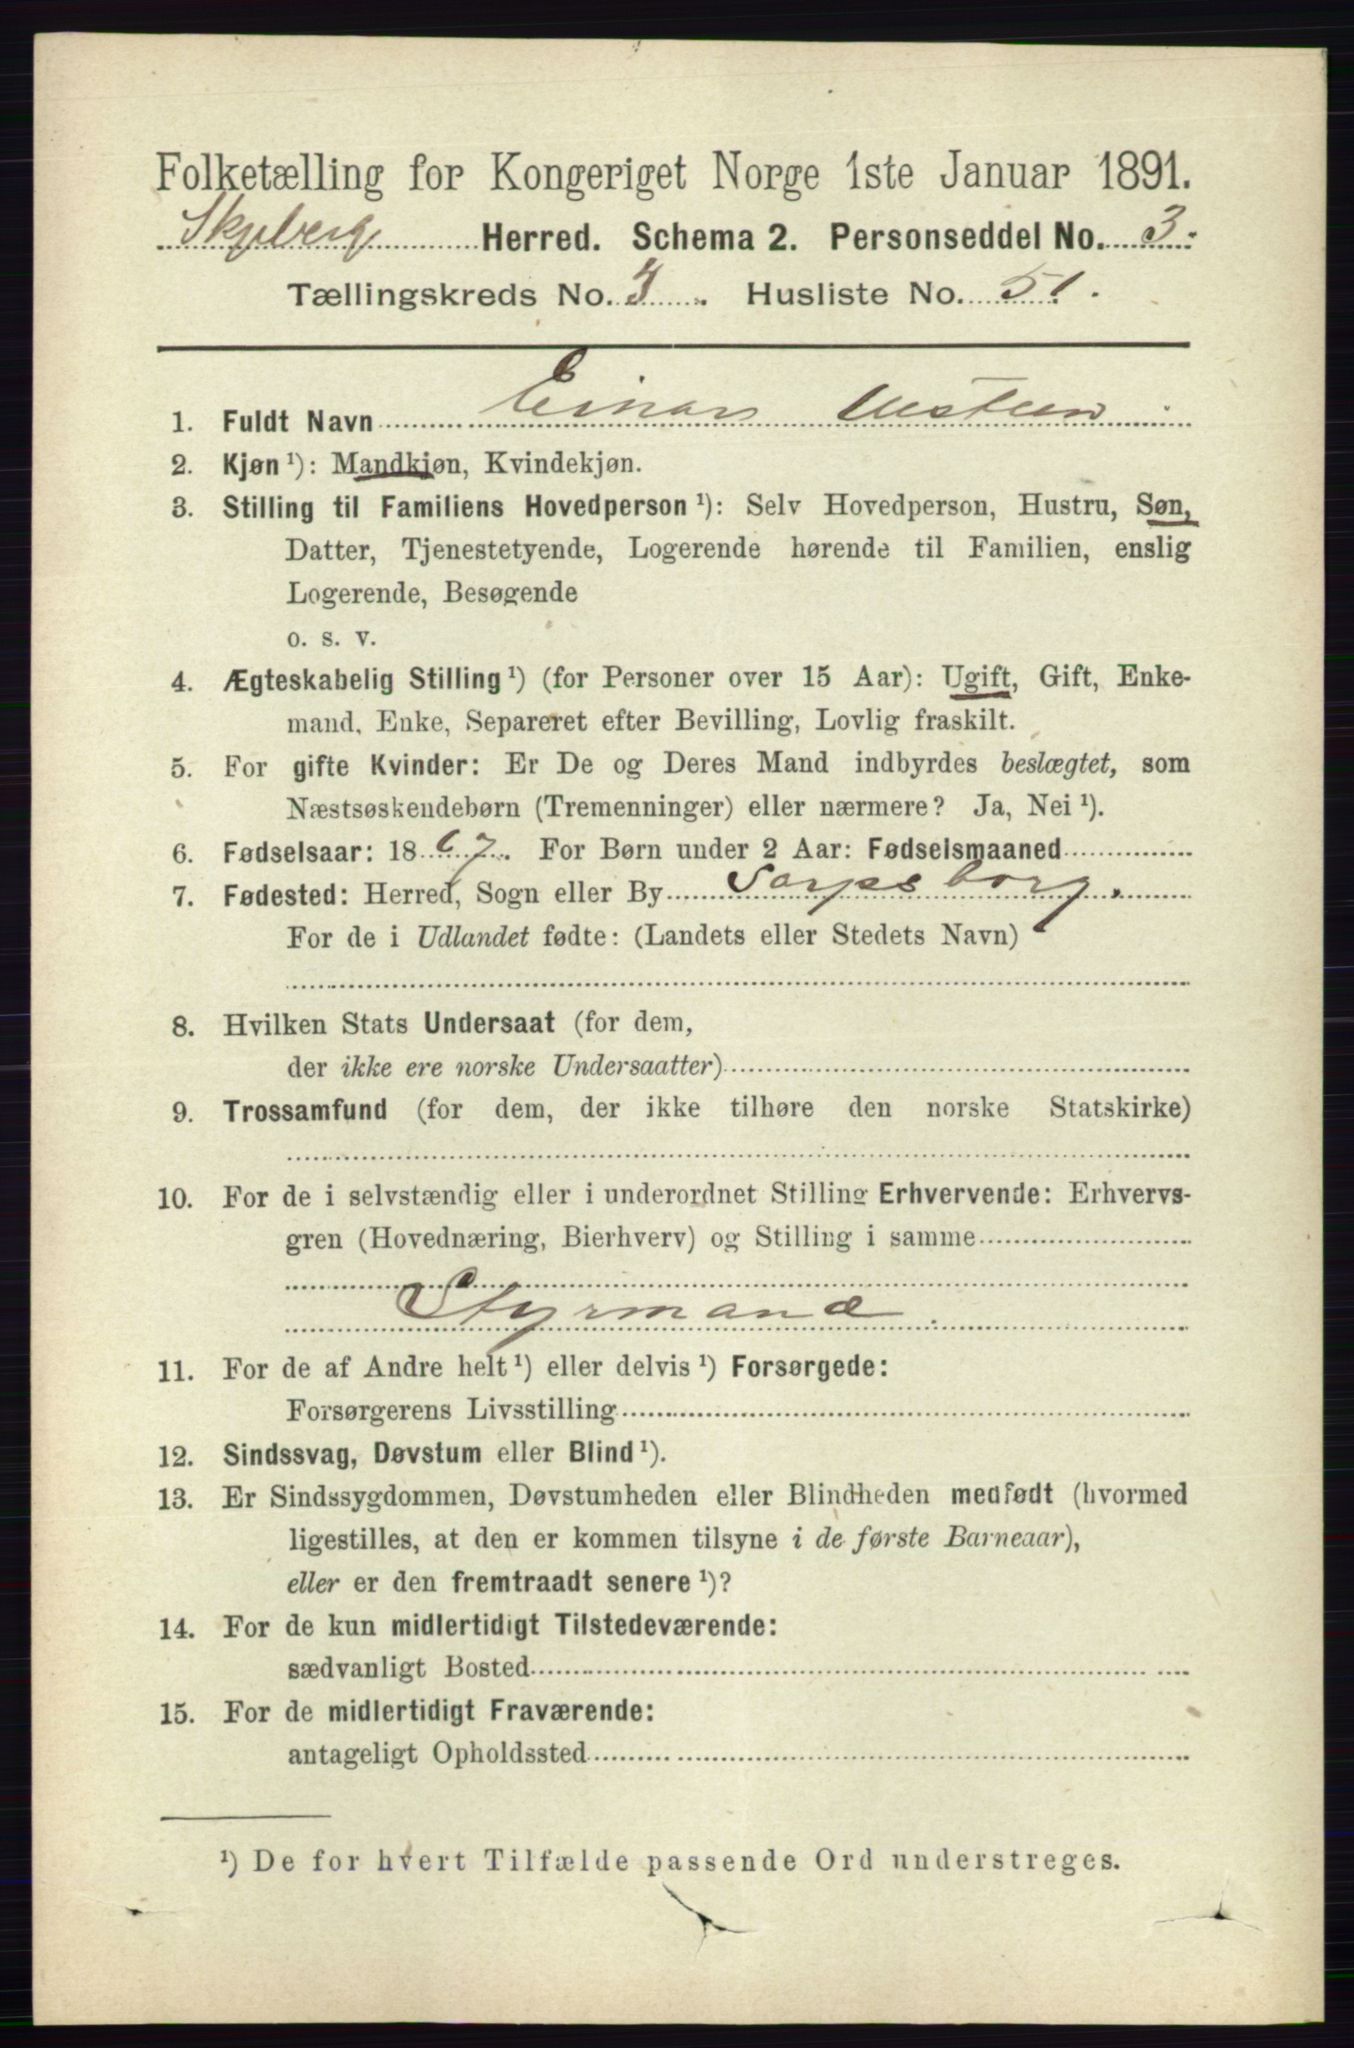 Folketælling for Kongeriget Norge 1ste Januar 1891.
Skjeberg Herred. Schema 2. Personseddel No. 3.
Tællingskreds No. 3. Husliste No. 51.
1. Fuldt Navn Einar
2. Kjøn ¹): Mandkjøn, Kvindekjøn.
3. Stilling til Familiens Hovedperson ¹): Selv Hovedperson, Hustru, Søn,
Datter, Tjenestetyende, Logerende hørende til Familien, enslig
Logerende, Besøgende
o. s. v.
4. Ægteskabelig Stilling ¹) (for Personer over 15 Aar): Ugift, Gift, Enke-
mand, Enke, Separeret efter Bevilling, Lovlig fraskilt.
5. For gifte Kvinder: Er De og Deres Mand indbyrdes beslægtet, som
Næstsøskendebørn (Tremenninger) eller nærmere? Ja, Nei ¹).
6. Fødselsaar: 1867. For Børn under 2 Aar: Fødselsmaaned
7. Fødested: Herred, Sogn eller By Sarpsborg.
For de i Udlandet fødte: (Landets eller Stedets Navn)
8. Hvilken Stats Undersaat (for dem,
der ikke ere norske Undersaatter)
9. Trossamfund (for dem, der ikke tilhøre den norske Statskirke)
10. For de i selvstændig eller i underordnet Stilling Erhvervende: Erhvervs-
gren (Hovednæring, Bierhverv) og Stilling i samme
Styrmand.
11. For de af Andre helt ¹) eller delvis ¹) Forsørgede:
Forsørgerens Livsstilling
12. Sindssvag, Døvstum eller Blind ¹).
13. Er Sindssygdommen, Døvstumheden eller Blindheden medfødt (hvormed
ligestilles, at den er kommen tilsyne i de første Barneaar),
eller er den fremtraadt senere ¹)?
14. For de kun midlertidigt Tilstedeværende:
sædvanligt Bosted
15. For de midlertidigt Fraværende:
antageligt Opholdssted
¹) De for hvert Tilfælde passende Ord understreges.